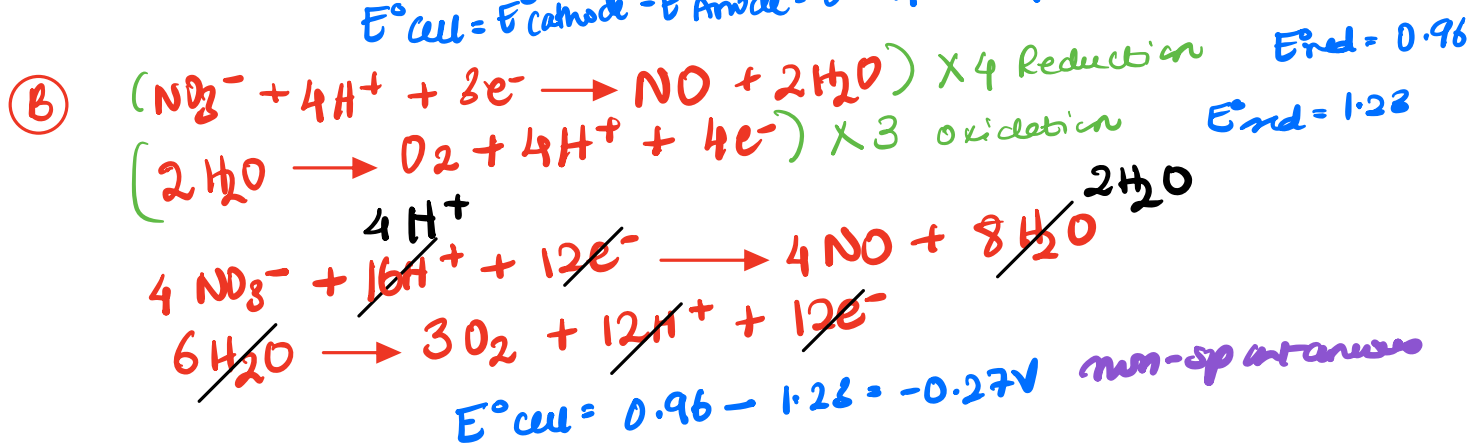 E°cell = E°Cathode - E°Anode =
B (NO3⁻ + 4H⁺ + 3e⁻ → NO + 2H2O) X4 Reduction E°red = 0.96
(2H2O → O2 + 4H⁺ + 4e⁻) X3 oxidation E°red = 1.23
4H⁺ 2H2O
4 NO3⁻ + 16H⁺ + 12e⁻ → 4NO + 8H2O
6H2O → 3O2 + 12H⁺ + 12e⁻
E°cell = 0.96 - 1.23 = -0.27V non-spontaneous